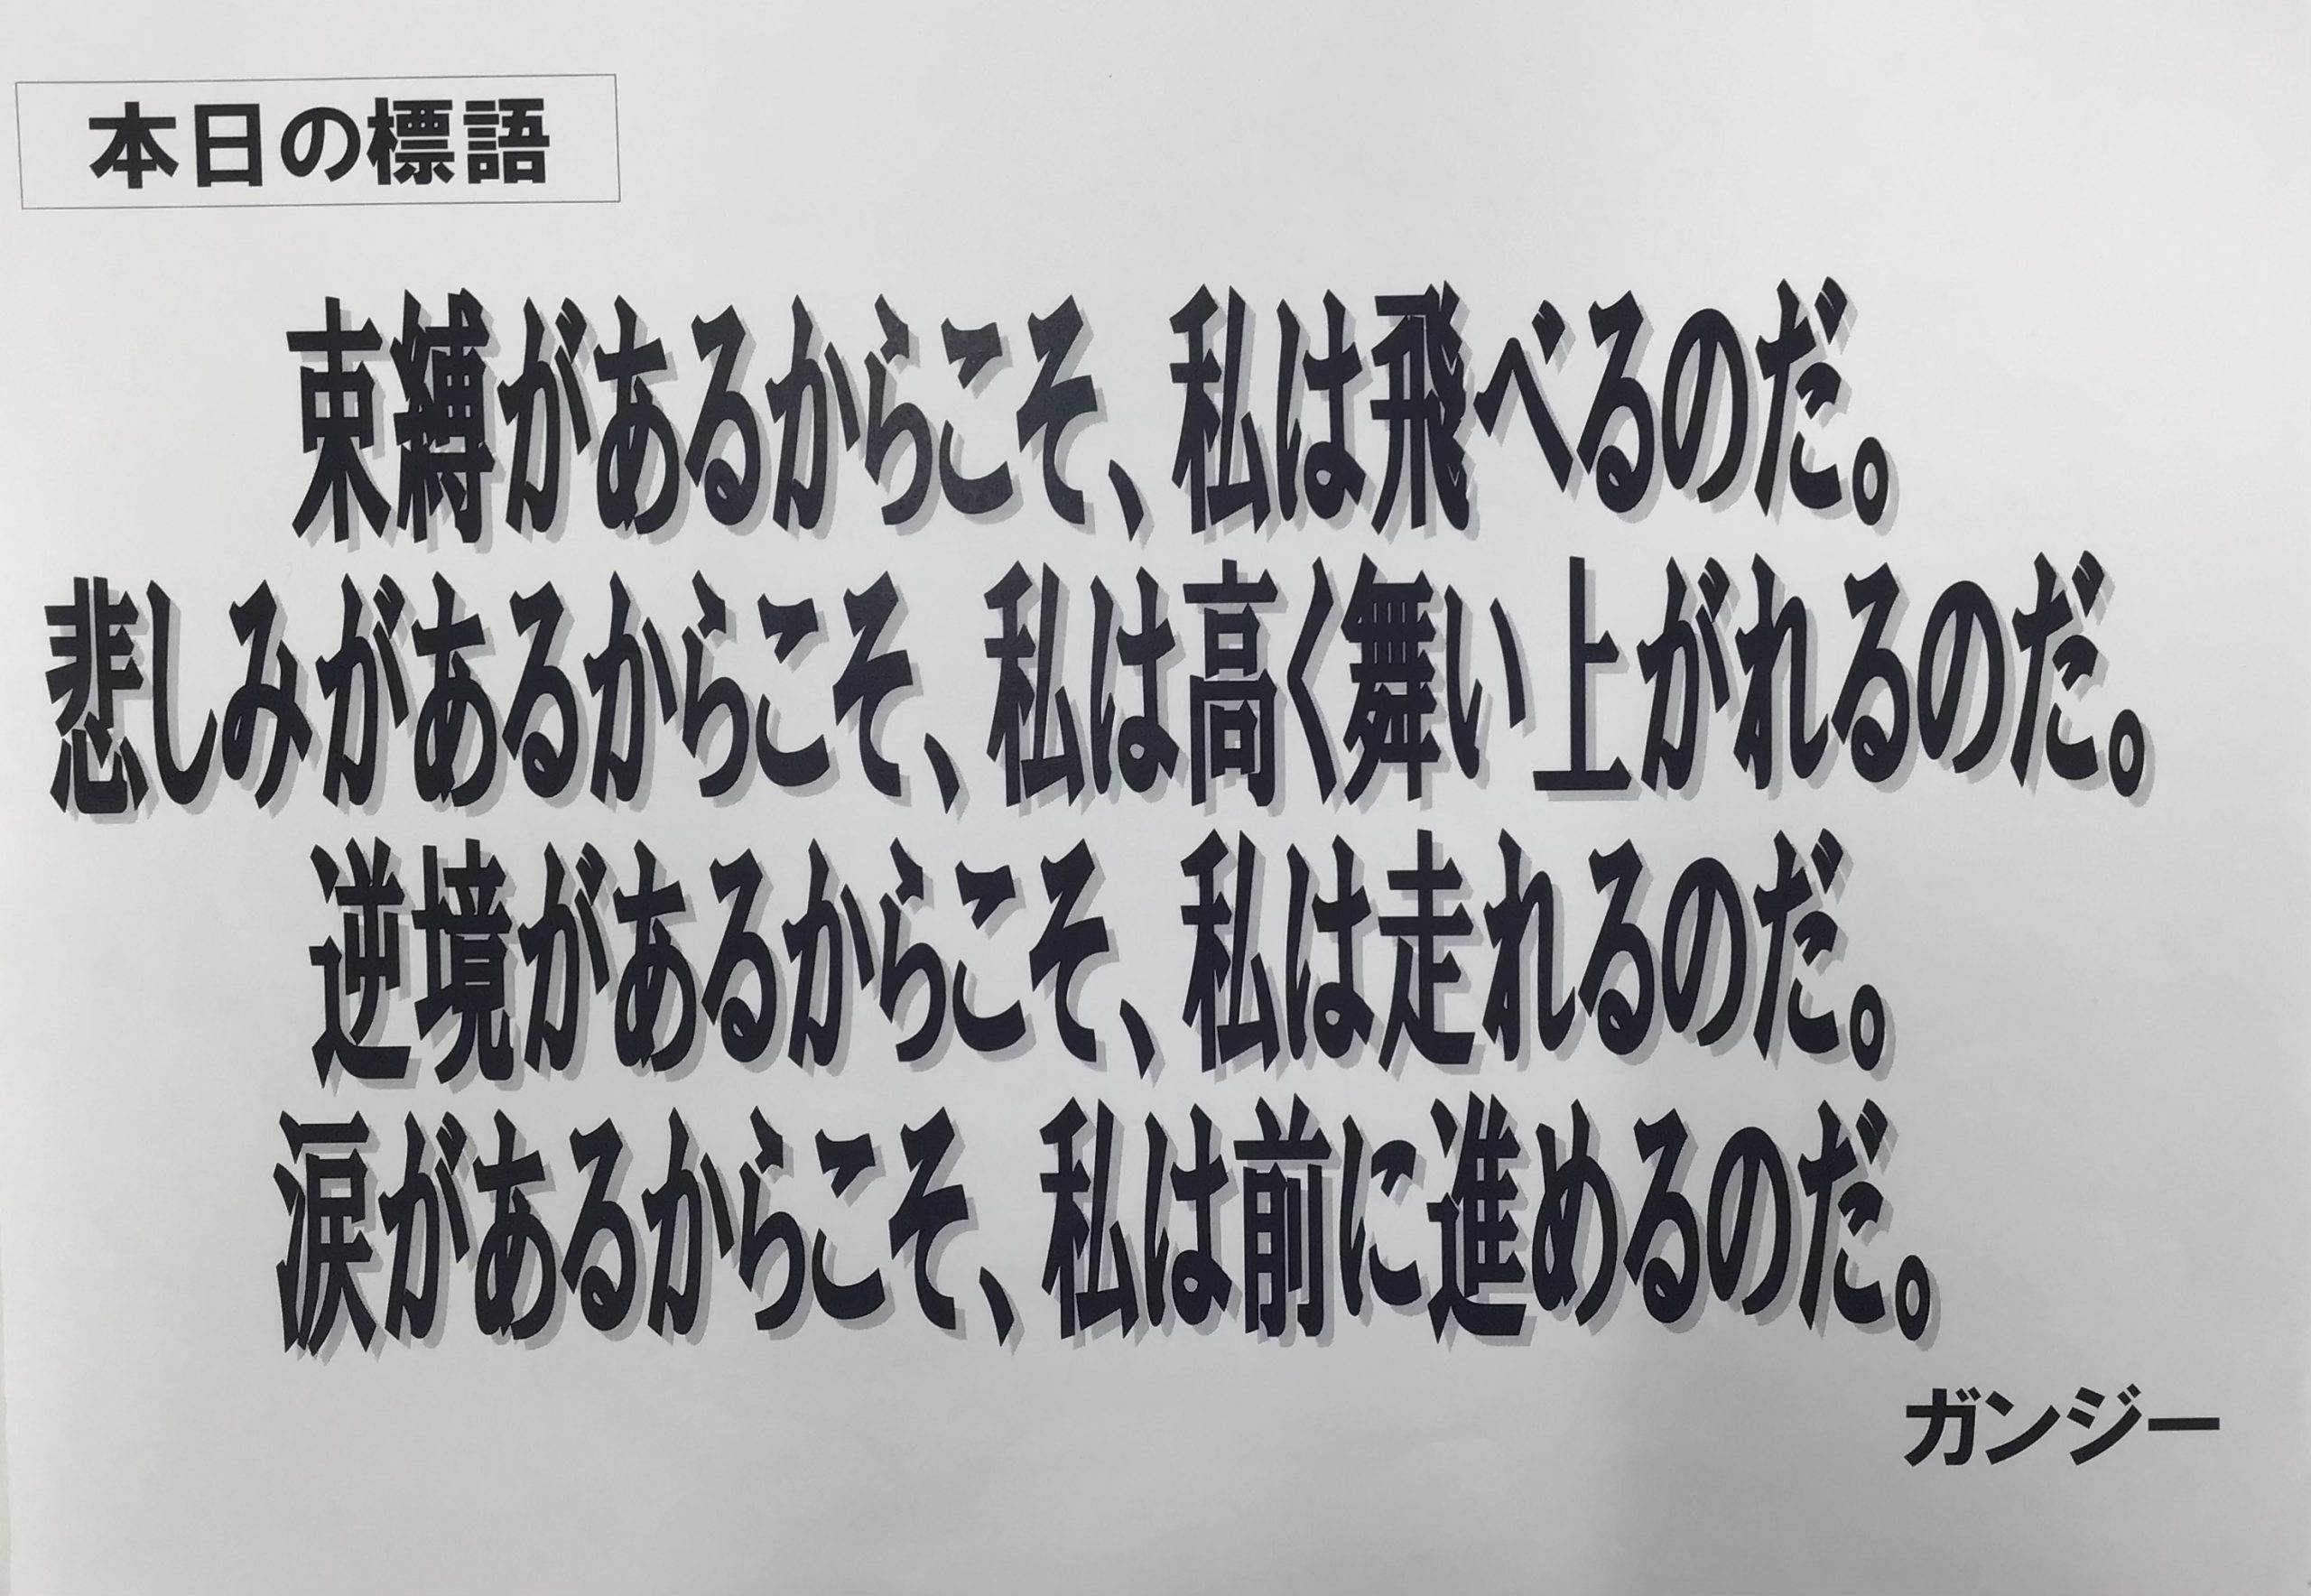 本日の標語
束縛があるからこそ、私は飛べるのだ。
悲しみがあるからこそ、私は高く舞い上がれるのだ。
逆境があるからこそ、私は走れるのだ。
涙があるからこそ、私は前に進めるのだ。
ガンジー